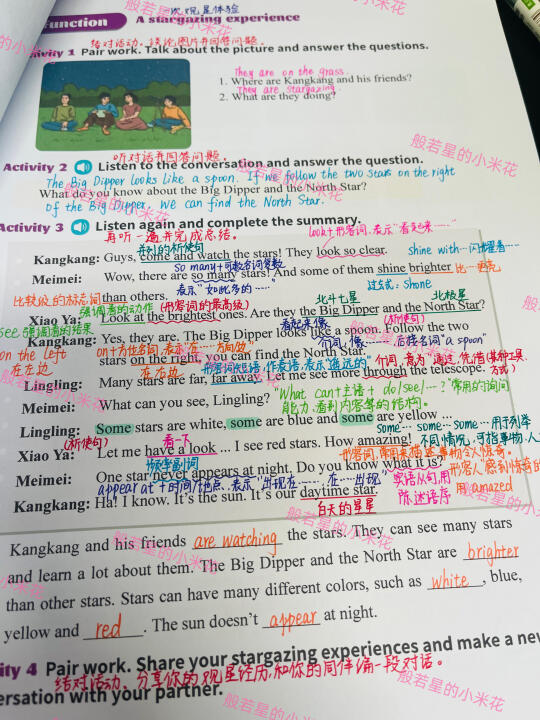 次观星体验
Function
A stargazing experience
结对活动。谈论图片并回答问题.
ivity 1 Pair work. Talk about the picture and answer the questions.
They are on the grass.
1. Where are Kangkang and his friends?
They are stargazing.
2. What are they doing?
听对话并回答问题.
Activity 2 Listen to the conversation and answer the question.
The Big Dipper looks like a spoon. If we follow the two stars on the right
What do you know about the Big Dipper and the North Star?
of the Big Dipper, we can find the North Star.
Activity 3 Listen again and complete the summary.
再听一遍并完成总结。
look+形容词,表示"看起来……"
并列的祈使句
Kangkang: Guys, come and watch the stars! They look so clear.
shine with…闪耀着……
so many+可数名词复数
Meimei: Wow, there are so many stars! And some of them shine brighter
比…更亮
than others.
表示"如此多的……"
过去式: Shone
比较级的标志词
强调看的动作
(形容词的最高级)
北斗七星
北极星
Xiao Ya: Look at the brightest ones. Are they the Big Dipper and the North Star?
see 强调看的结果
看起来像
(祈使句)
Kangkang: Yes, they are. The Big Dipper looks like a spoon. Follow the two
on the left
on+方位名词,表示"在……方向/边"
介词,像…
后接名词"a spoon"
stars on the right, you can find the North Star.
在左边
在右边
形容词短语,作表语,表示"遥远的"
介词,意为"通过,凭借(某种工具、方式)
Lingling: Many stars are far, far away. Let me see more through the telescope.
"What can+主语+do/see/…?"常用的询问
Meimei: What can you see, Lingling?
能力、看到内容等的结构。
Lingling: Some stars are white, some are blue and some are yellow ...
some… some… some…用于列举
(祈使句)
看一下
不同情况,可指事物、人
Xiao Ya: Let me have a look ... I see red stars. How amazing!
频度副词
形容词,常用来描述事物令人惊奇。
Meimei: One star never appears at night. Do you know what it is?
形容人感到惊奇的
appear at+时间/地点,表示"出现在……、在……出现"
宾语从句,用
用amazed
Kangkang: Ha! I know. It's the sun. It's our daytime star.
陈述语序
白天的星星
Kangkang and his friends are watching the stars. They can see many stars
and learn a lot about them. The Big Dipper and the North Star are brighter
than other stars. Stars can have many different colors, such as white, blue,
yellow and red. The sun doesn't appear at night.
ity 4 Pair work. Share your stargazing experiences and make a new
结对活动。分享你的观星经历,和你的同伴编一段对话。
ersation with your partner.
般若星的小米花